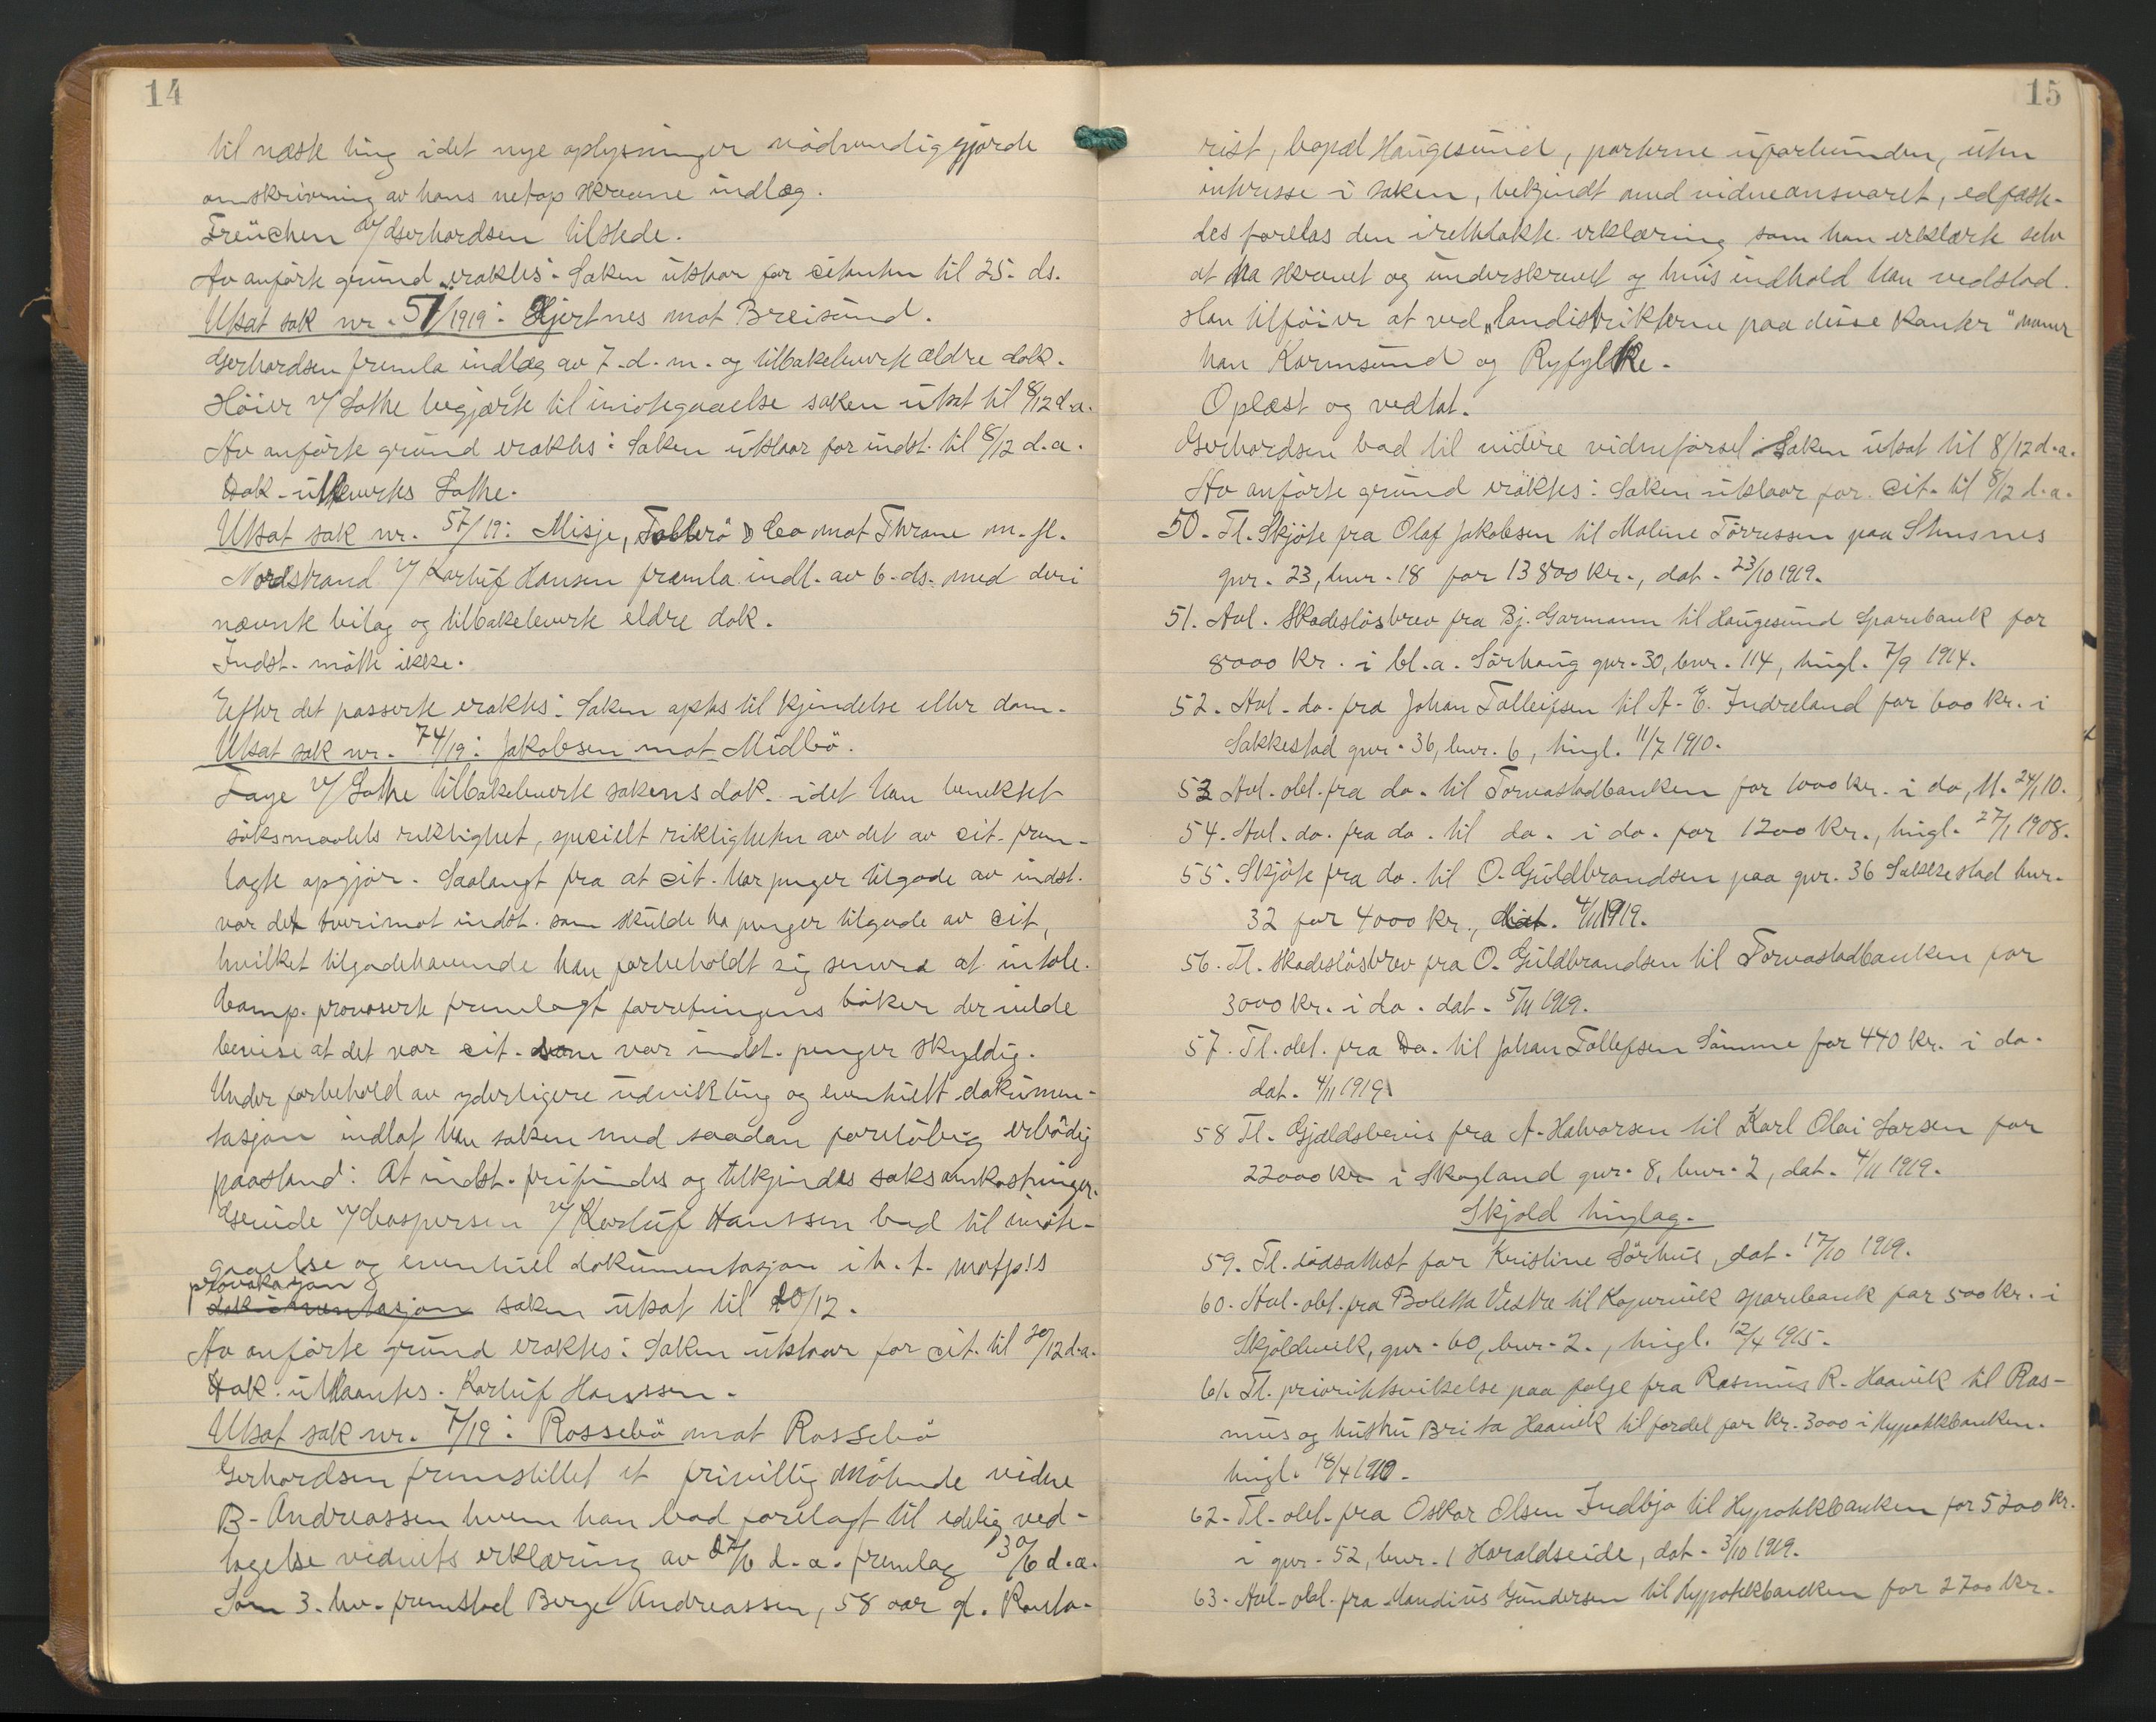 14
til næste ting idet nye oplysninger nødvendiggjorde
omskrivning av hans netop skrevne indlæg.
Freüchen v/ Gerhardsen tilstede.
Av anførte grund eraktes: Saken utstaar for citanten til 25. ds.
Utsat sak nr. 51/1919: Hjertnes mot Breisund.
Gerhardsen fremla indlæg av 7. d. m. og tilbakeleverte ældre dok.
Høier v/ Lothe begjærte til imøtegaaelse saken utsat til 8/12 d.a.
Av anførte grund eraktes: Saken utstaar for indst. til 8/12 d.a.
Dok. utlevertes Lothe.
Utsat sak nr. 57/19: Misje, & Co mot Thrane m. fl.
Nordstrand v/ Karluf Hansen fremla indl. av 6. ds. med deri
nævnte bilag og tilbakeleverte eldre dok.
Indst. møtte ikke.
Efter det passerte eraktes: Saken optas til kjendelse eller dom.
Utsat sak nr. 74/19: Jakobsen mot Midbø.
Faye v/ Lothe tilbakeleverte sakens dok. idet han benektet
søksmaalets riktighet, specielt riktigheten av det av cit. frem-
lagte opgjør. Saalangt fra at cit. har penger tilgode av indst.
var det tverimot indst. som skulde ha penger tilgode av cit,
hvilket tilgodehavende han forbeholdt sig senere at intale.
Comp. provoserte fremlagt forretningens bøker der vilde
bevise at det var cit. som var indst. penger skyldig.
Under forbehold av yderligere utvikling og eventuelt dokumen-
tasjon indlot han saken med saadan foreløbig erbødig
paastand: At indst. frifindes og tilkjendes saksomkostninger.
v/ Caspersen v/ Karluf Hanssen bad til imøte-
gaaelse og eventuel dokumentasjon i h. t. motp's
provokasjon
dokumentasjon saken utsat til 20/12.
Av anførte grund eraktes: Saken utstaar for cit. til 20/12 d.a.
Dok. utlaantes. Karluf Hanssen.
Utsat sak nr. 7/19: Rossebø mot Rossebø
Gerhardsen fremstillet et frivillig møtende vidne
B. Andreassen hvem han bad forelagt til edelig ved-
tagelse vidnets erklæring av 27/6 d. a. fremlag 30/6 d.a.
Som 3. hv. fremstod Berge Andreassen, 58 aar gl. Konto-
15
rist, bopæl Haugesund, parterne uforbunden, uten
intresse i saken, bekjendt med vidneansvaret, edfæste-
des forelas den irettelakte erklæring som han erklærte selv
at ha skrevet og underskrevet og hvis indhold han vedstod.
Han tilføier at ved „landistrikterne paa disse kanter" mener
han Karmsund og Ryfylke.
Oplæst og vedtat.
Gerhardsen bad til videre vidneførsel Saken utsat til 8/12 d.a.
Av anførte grund eraktes: Saken utstaar for cit. til 8/12 d.a.
50. Tl. Skjøte fra Olaf Jakobsen til Maline Tørressen paa Stusnes
gnr. 23, bnr. 18 for 13800 kr., dat. 23/10 1919.
51. Avl. Skadesløsbrev fra Bj. Garmann til Haugesund Sparebank for
8000 kr. i bl.a. Sørhaug gnr. 30, bnr. 114, tingl. 7/9 1914.
52. Avl. do. fra Johan Tollefsen til A. E. Indreland for 600 kr. i
Sakkestad gnr. 36, bnr. 6, tingl. 11/7 1910.
53 Avl. obl. fra do. til Torvastadbanken for 1000 kr. i do, tl. 24/1 10.
54. Avl. do. fra do. til do. i do. for 1200 kr., tingl. 27/1 1908.
55. Skjøte fra do. til O. Guldbrandsen paa gnr. 36 Sakkestad bnr.
32 for 4000 kr., dat. 4/11 1919.
56. Tl. skadesløsbrev fra O. Guldbrandsen til Torvastadbanken for
3000 kr. i do. dat. 5/11 1919.
57. Tl. obl. fra Do. til Johan Tollefsen Sømme for 440 kr. i do.
dat. 4/11 1919
58 Tl. Gjældsbevis fra A. Halvorsen til Karl Olai Larsen for
22000 kr i Skogland gnr. 8, bnr. 2, dat. 4/11 1919.
Skjold tinglag.
59. Tl. dødsattest for Kristine Sørhus, dat. 17/10 1919.
60. Avl. obl. fra Boletta Vestre til Kopervik sparebank for 500 kr. i
Skjoldevik, gnr. 60, bnr. 2., tingl. 12/4 1915.
61. Tl. prioritetsvikelse paa følge fra Rasmus R. Haavik til Ras-
mus og hustru Brita Haavik til fordel for kr. 3000 i Hypotekbanken.
tingl. 18/4 1910.
62. Tl. obl. fra Oskar Olsen Indbjo til Hypotekbanken for 5200 kr.
i gnr. 52, bnr. 1 Haraldseide, dat. 3/10 1919.
63. Avl. obl. fra Mandius Gundersen til Hypotekbanken for 2700 kr.